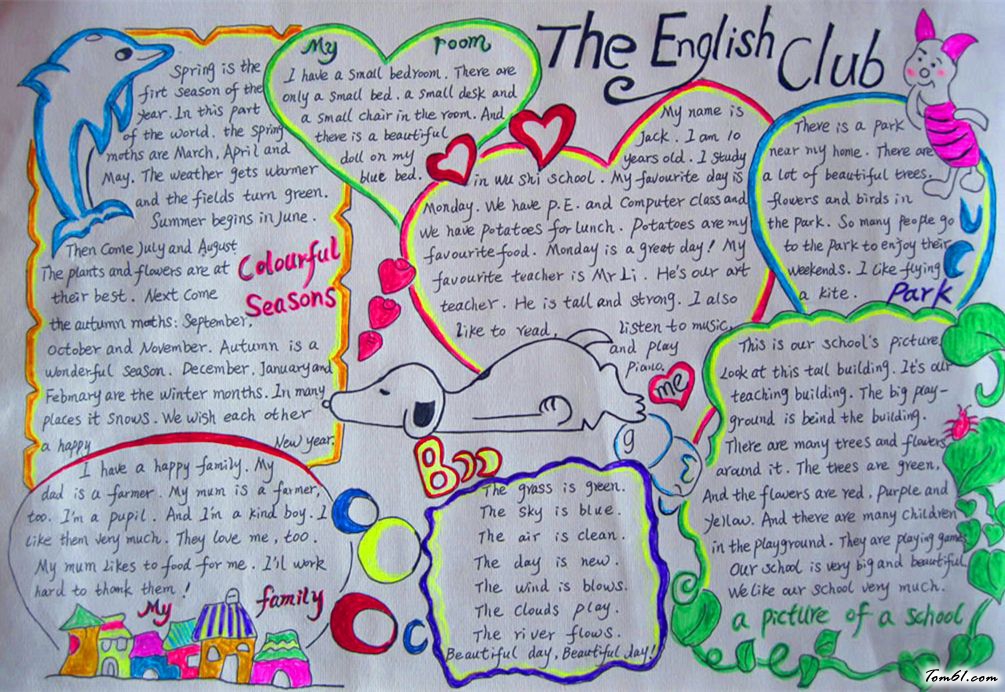 The English Club
Spring is the
firt season of the
year. In this part
of the world. the spring
moths are March, April and
May. The weather gets warmer
and the fields turn green.
Summer begins in June.
Then Come July and August
The plants and flowers are at
their best. Next Come
the autumn moths: September.
October and November. Autumn is a
wonderful season. December, January and
Febmary are the winter months. In many
places it snows. We wish each other
a happy New year.
Colourful
Seasons
My room
I have a small bedroom. There are
only a small bed. a small desk and
a small chair in the room. And
there is a beautiful
doll on my
blue bed.
My name is
Jack. I am 10
years old. I study
in wu shi school. My favourite day is
Monday. We have P.E. and Computer class and
we have Potatoes for lunch. Potatoes are my
favourite food. Monday is a great day! My
favourite teacher is Mr Li. He's our art
teacher. He is tall and strong. I also
like to read, listen to music,
and play
Piano.
me
There is a park
near my home. There are
a lot of beautiful trees.
flowers and birds in
the park. So many people go
to the Park to enjoy their
weekends. I like flying
a kite.
Park
I have a happy family. My
dad is a farmer. My mum is a farmer,
too. I'm a pupil. And I'm a kind boy. I
like them very much. They love me, too.
My mum likes to food for me. I'll work
hard to thank them!
My family
The grass is green.
The sky is blue.
The air is clean.
The day is new.
The wind is blows.
The clouds play.
The river flows.
Beautiful day, Beautiful day!
This is our school's picture.
Look at this tall building. It's our
teaching building. The big play-
ground is beind the building.
There are many trees and flowers
around it. The trees are green.
And the flowers are red, Purple and
yellow. And there are many children
in the playground. They are playing games
Our school is very big and beautiful
We like our school very much.
a picture of a school
Tom61.com